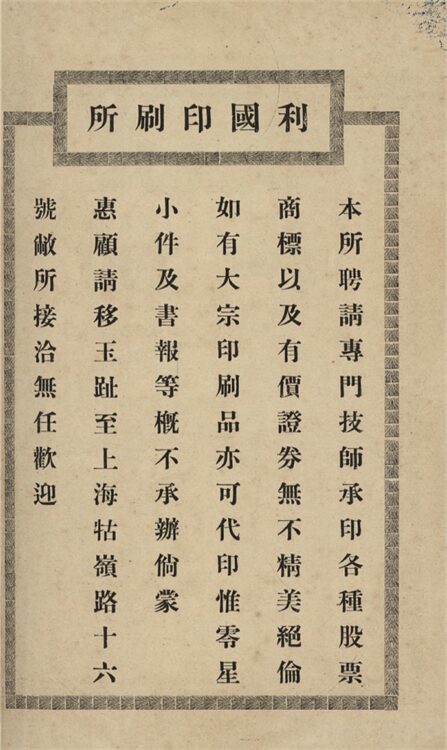 利國印刷所
本所聘請專門技師承印各種股票
商標以及有價證券無不精美絕倫
如有大宗印刷品亦可代印惟零星
小件及書報等概不承辦倘蒙
惠顧請移玉趾至上海牯嶺路十六
號敝所接洽無任歡迎